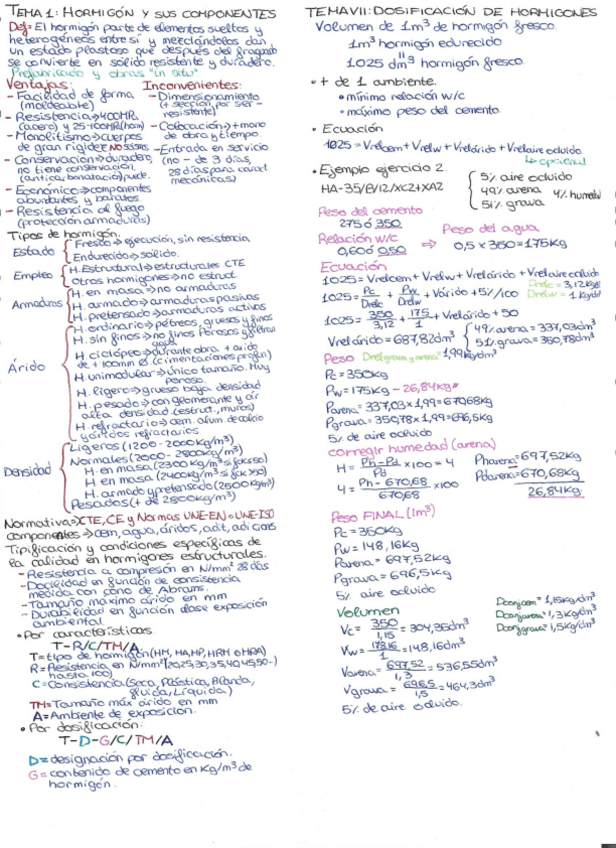 TEMA 1: HORMIGÓN Y SUS COMPONENTES
Def: El hormigón parte de elementos sueltos y
heterogéneos entre si y mezclándolos dan
un estado plastoso que después del fraguado
se convierte en sólido resistente y duradero.
Prefabricado y obras "in situ"
Ventajas:
- Facilidad de forma
(moldeable)
- Resistencia→400MPa
(acero) y 25-100MPa(horm)
- Monolitismo→cuerpos
de gran rigidez NO SISMOS
- Conservación→duradero,
no tiene conservación
- Económico→componentes
abundantes y baratos
- Resistencia al fuego
(protección armaduras)
Inconvenientes:
- Dimensionamiento
(+ sección por ser -
resistente)
- Colocación→+mano
de obra y tiempo
- Entrada en servicio
(no - de 3 días,
28 días para caract
mecánicas)
Tipos de hormigón.
Estado
Fresco→ejecución, sin resistencia
Endurecido→sólido.
Empleo
H. Estructural→estructurales CTE
Otros hormigones→no estruct
Armaduras
H. en masa→no armaduras
H. armado→armaduras pasivas
H. pretensado→armaduras activas
Árido
H. ordinario→pétreos, gruesos y finos
H. sin finos→no finos Porosos
H. ciclópeo→durante obra + árido
de +100mm Ø (cimentaciones profun)
H. unimodular→único tamaño. Muy
poroso.
H. ligero→grueso baja densidad
H. pesado→con geomerante y air
alta densidad (estruct., muros)
H. refractario→cem. alum de calcio
y áridos refractarios
Densidad
Ligeros (1200-2000kg/m³)
Normales (2000-2800kg/m³)
H. en masa (2300kg/m³ si fck≤50)
H. en masa (2400kg/m³ si fck>50)
H. armado y pretensado (2500kg/m³)
Pesados (+ de 2800kg/m³)
Normativa→CTE, CE y Normas UNE-EN o UNE-ISO
componentes→cem, agua, áridos, adit, adicions
Tipificación y condiciones específicas de
la calidad en hormigones estructurales.
- Resistencia a compresión en N/mm² 28 días
- Docilidad en función de consistencia
medida con cono de Abrams.
- Tamaño máximo árido en mm
- Durabilidad en función clase exposición
ambiental.
• Por características
T-R/C/TM/A
T=tipo de hormigón (HM, HA, HP, HRH o HRA)
R=Resistencia en N/mm² (20,25,30,35,40,45,50-)
hasta 100)
C=Consistencia (Seca, Plástica, Blanda,
fluida, Líquida)
TM=Tamaño máx árido en mm
A=Ambiente de exposición.
• Por dosificación:
T-D-G/C/TM/A
D=designación por dosificación.
G=contenido de cemento en kg/m³ de
hormigón.
TEMA VII: DOSIFICACIÓN DE HORMIGONES
Volumen de 1m³ de hormigón fresco.
1m³ hormigón edurecido
=
1025 dm³ hormigón fresco.
• + de 1 ambiente.
• mínimo relación w/c
• máximo peso del cemento.
• Ecuación
1025 = Vrelcem + Vrelw + Vrelárido + Vrelaire ocluido
↳ opcional
• Ejemplo ejercicio 2
HA-35/B/12/XC2+XA2
5% aire ocluido
49% arena 4% humedad
51% grava
Peso del cemento
275 ó 350
Relación w/c
0,60 ó 0,50
⇒
Peso del agua
0,5 x 350 = 175kg
Ecuación
1025 = Vrelcem + Vrelw + Vrelárido + Vrelaire ocluido
1025 = Pc/Drelc + Pw/Drelw + Várido + 5%/100
Drelc = 3,12kg/
Drelw = 1kg/d
1025 = 350/3,12 + 175/1 + Vrelárido + 50
Vrelárido = 687,82dm³
49% arena = 337,03dm³
51% grava = 350,78dm³
Peso Drelgrava y arena = 1,99kg/dm³
Pc = 350kg
Pw = 175kg - 26,84kg
Parena = 337,03 x 1,99 = 670,68kg
Pgrava = 350,78 x 1,99 = 696,5kg
5% de aire ocluido
corregir humedad (arena)
H = Ph-Pd/Pd x100 = 4
4 = Ph - 670,68/670,68 x100
Pharena = 697,52kg
Pdarena = 670,68kg
26,84kg
Peso FINAL (1m³)
Pc = 350kg
Pw = 148,16kg
Parena = 697,52kg
Pgrava = 696,5kg
5% aire ocluido
Volumen
Dconjcem = 1,15kg/dm³
Dconjarena = 1,3kg/dm³
Dconjgrava = 1,5kg/dm³
Vc = 350/1,15 = 304,35dm³
Vw = 148,16/1 = 148,16dm³
Varena = 697,52/1,3 = 536,55dm³
Vgrava = 696,5/1,5 = 464,3dm³
5% de aire ocluido.